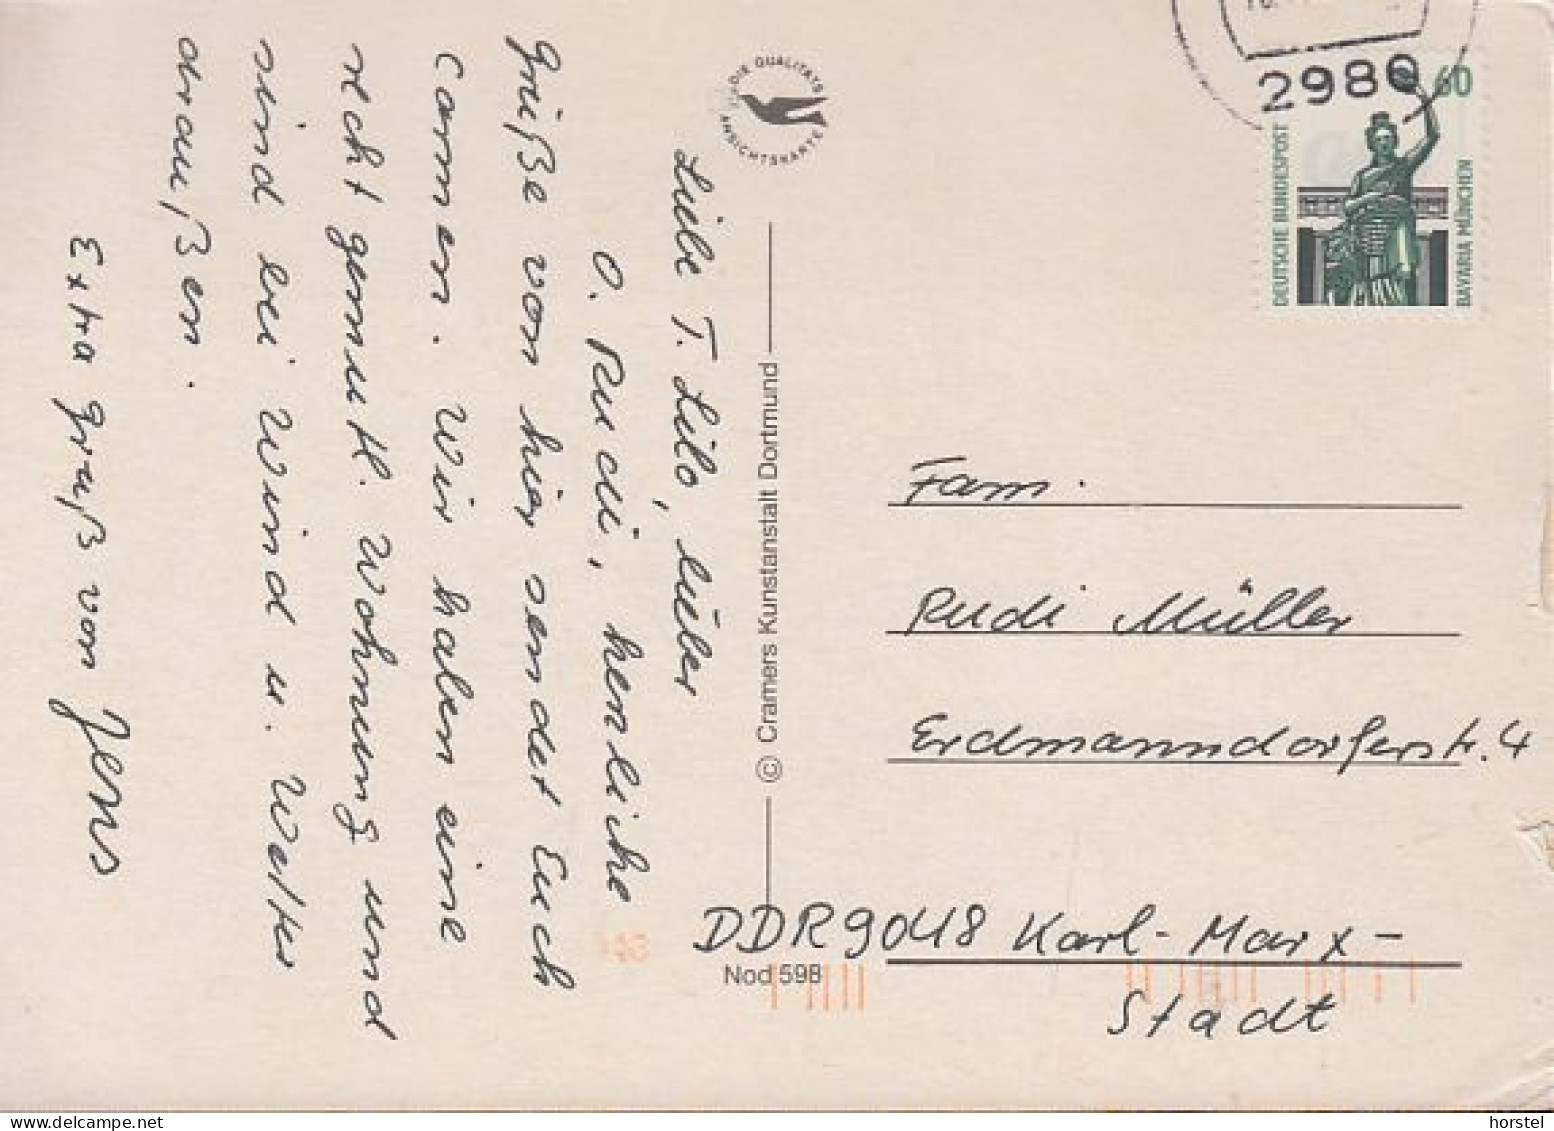 Liebe T. Lilo, lieber
O. Rudi, herzliche
Grüße von hier sendet Euch
Carmen. Wir haben eine
recht gemütl. Wohnung und
sind bei Wind u. Wetter
draußen.
Extra Gruß von Jens
DIE QUALITÄTS
ANSICHTSKARTE
© Cramers Kunstanstalt Dortmund
Nod 598
2980
60
DEUTSCHE BUNDESPOST
BAVARIA MÜNCHEN
Fam.
Rudi Müller
Erdmanndorferstr. 4
DDR 9048 Karl-Marx-
Stadt
horstel